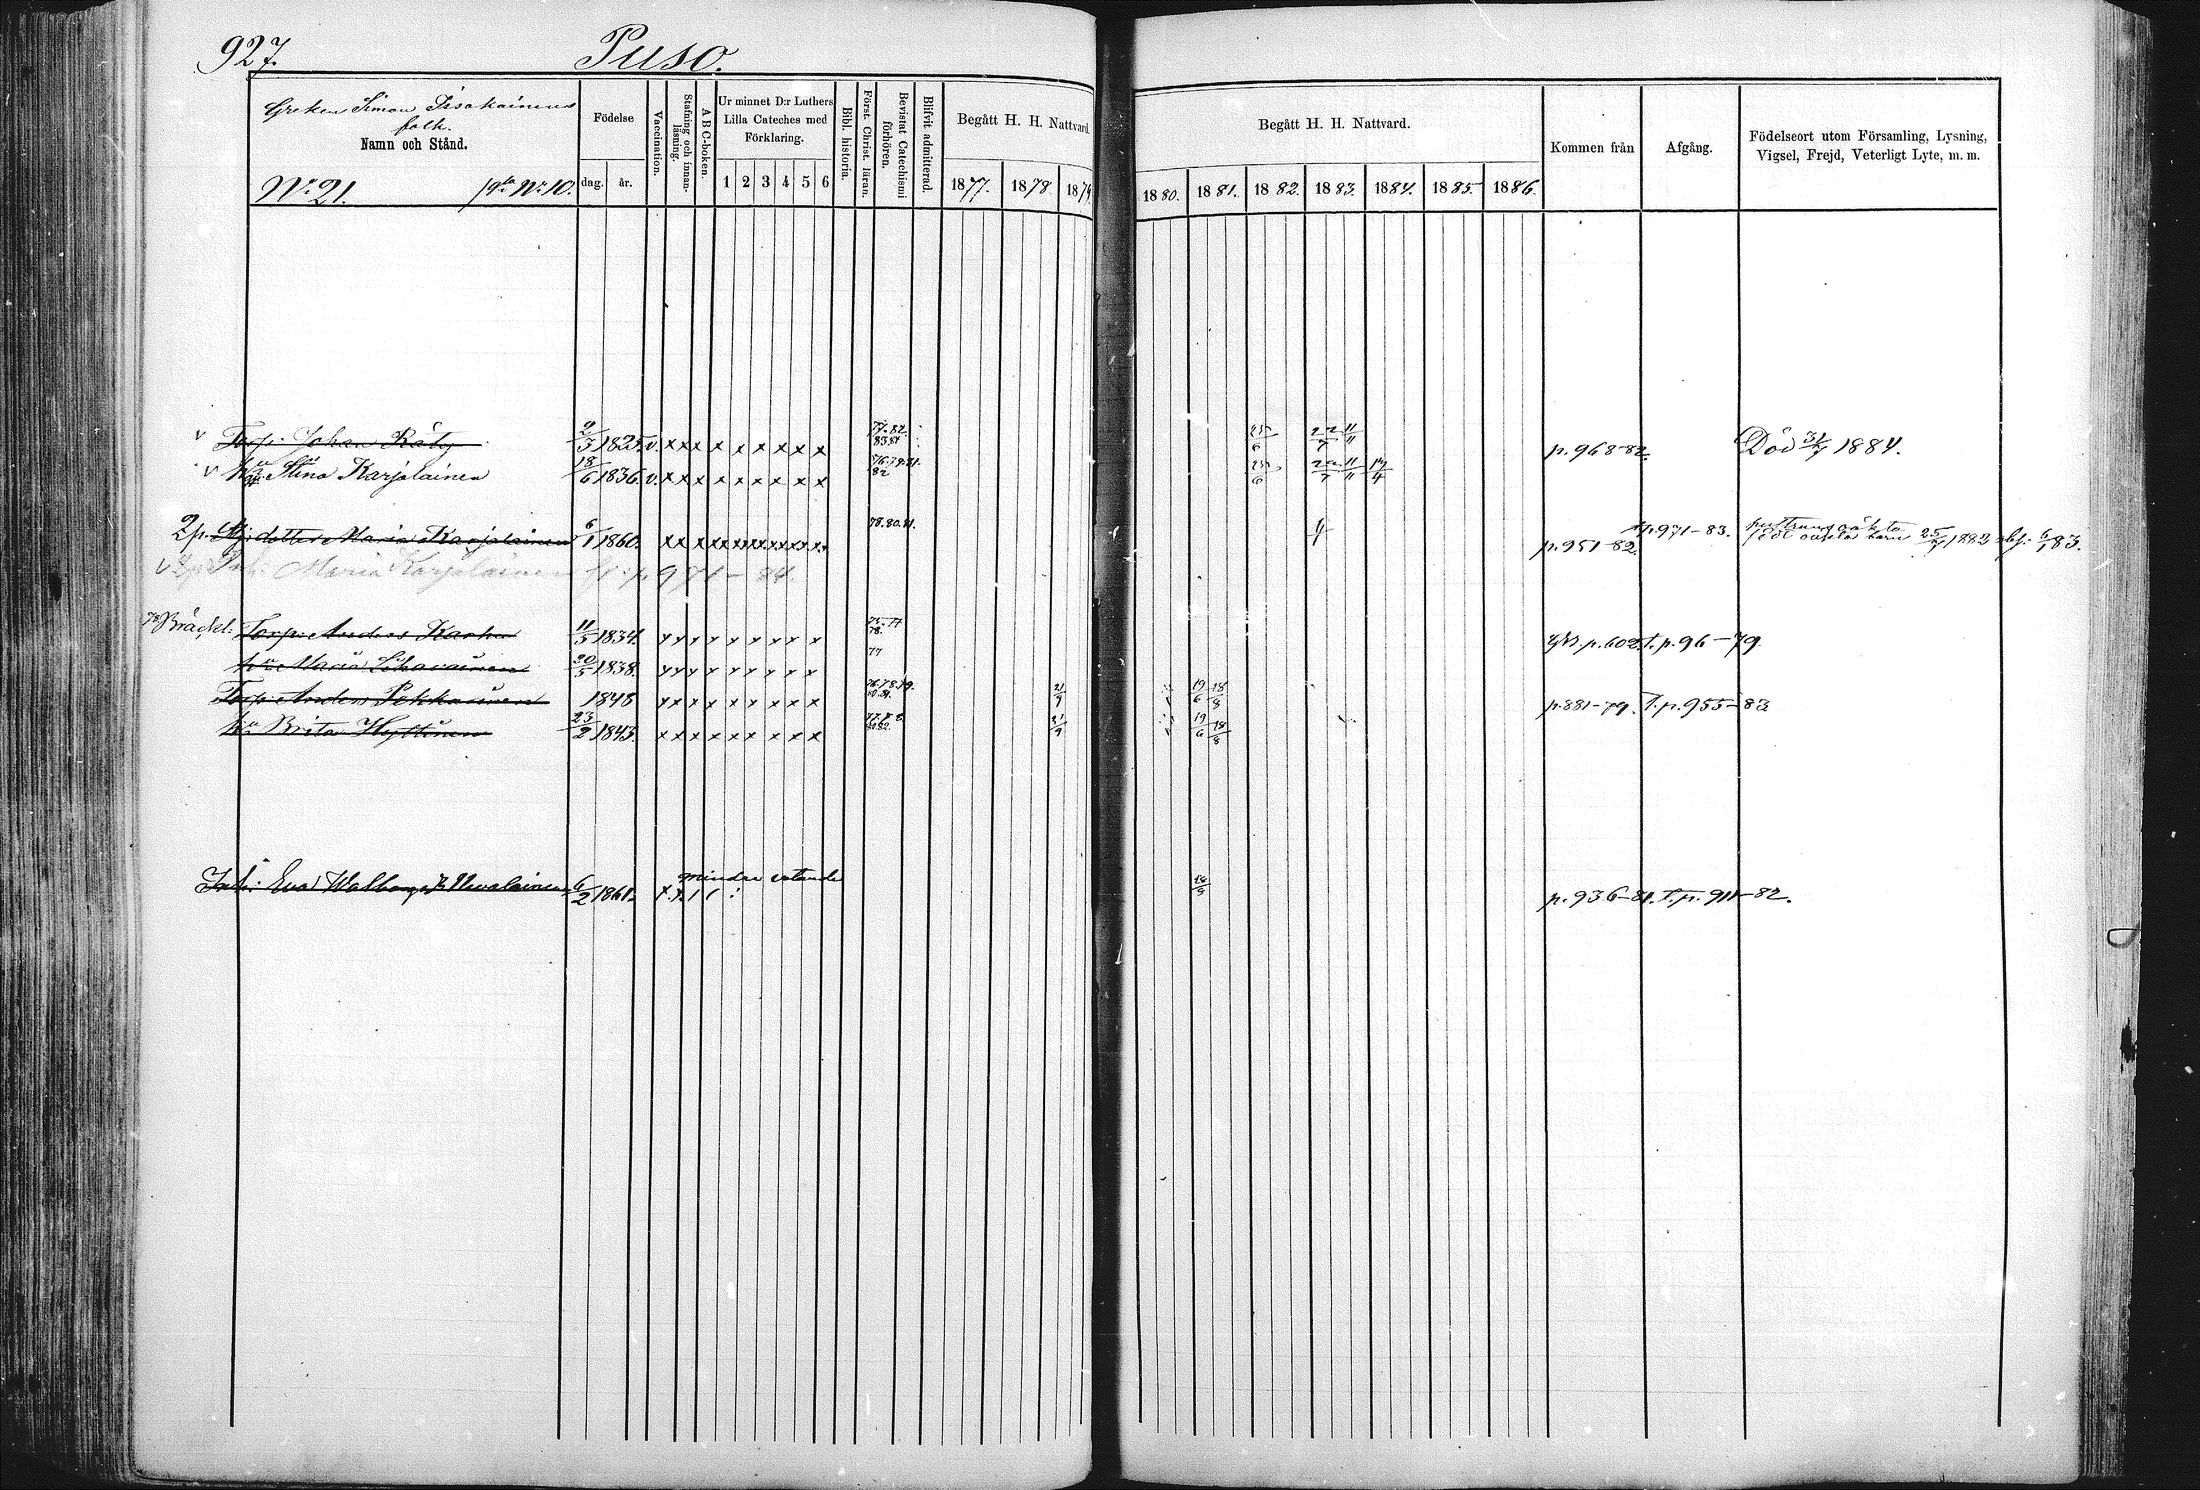 927. Puso.
Greken Simon folk.
Namn och Stånd.
Nº 21. Nº 10.
Födelse
dag. år.
Vaccination.
Stafning och innanläsning.
A B C-boken.
Ur minnet D:r Luthers Lilla Cateches med Förklaring.
1 2 3 4 5 6
Bibl. historia.
Först. Christ. läran.
Bevistat Catechismi förhören.
Blifvit admitterad.
Begått H. H. Nattvard.
1877. 1878. 1879
Begått H. H. Nattvard.
1880. 1881. 1882. 1883. 1884. 1885. 1886.
Kommen från
Afgång.
Födelseort utom Församling, Lysning, Vigsel, Frejd, Veterligt Lyte, m. m.
v Torp. Johan Räty 2/5 1825. v. x x x x x x x x x x 79.82. 83.84 25/6 11/11 p. 968-82. Död 31/7 1884.
v Stina Karjalainen 18/6 1836. v. x x x x x x x x x x 76.79.81. 82 25/6 11/11 p. 951-82.
2p. dotter Maria Karjalainen 6/1 1860. 78.80.81. p. 971-83. barn 25/7 1882 6/1 83.
v 2p. Maria Karjalainen p. 971-84.
Bräckl. Torp. Anders Karhu 11/5 1834. x x x x x x x x x 75.77 78. p. 602. T. p. 96-79
hu Maria 20/5 1838. x x x x x x x x x 77
Torp. Anders Pekkarinen 1848 x x x x x x x x x 21/9 19/6 18/8 p. 881-79. T. p. 955-83
hu Brita Hyttinen 23/2 1843. x x x x x x x x x 21/9 19/6 18/8
Inh: Eva Walborg 6/2 1861. mindre vetande p. 936-81. T. p. 911-82.